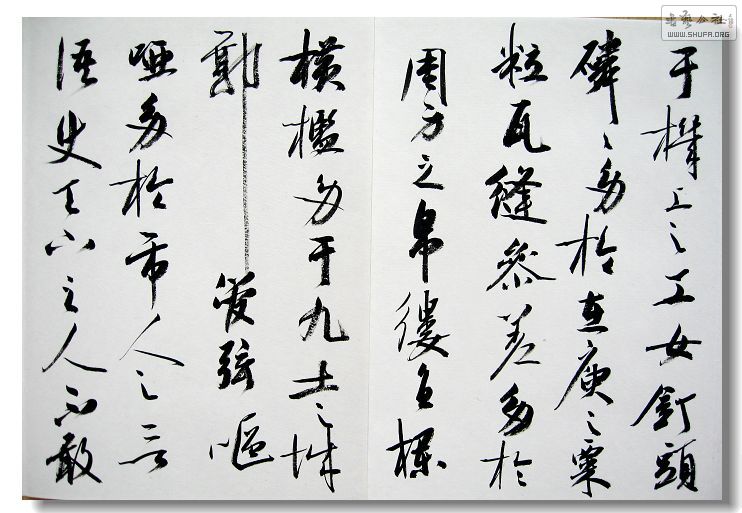 于機上之工女釘頭
磷々多於在庾之粟
粒瓦縫參差多於
周身之帛縷直欄
橫檻多于九土之城
郭管弦嘔
啞多於市人之言
語使天下之人不敢
书艺公社
WWW.SHUFA.ORG